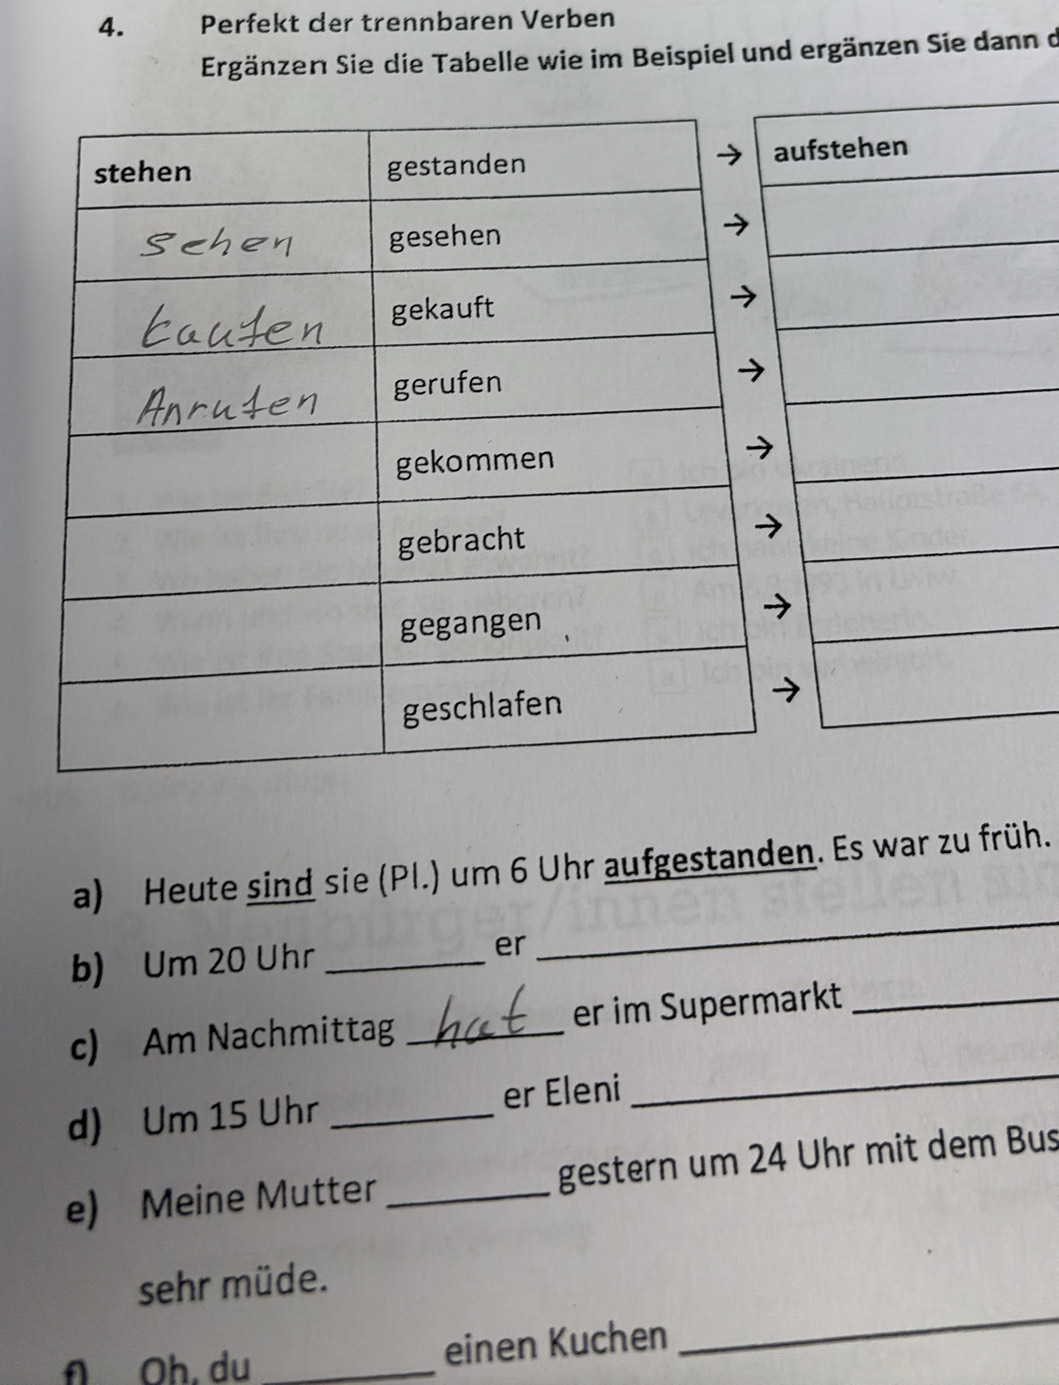 4. Perfekt der trennbaren Verben
Ergänzen Sie die Tabelle wie im Beispiel und ergänzen Sie dann d
stehen gestanden → aufstehen
sehen gesehen →
kaufen gekauft →
Anrufen gerufen →
gekommen →
gebracht →
gegangen →
geschlafen →
a) Heute sind sie (Pl.) um 6 Uhr aufgestanden. Es war zu früh.
b) Um 20 Uhr ________ er ________
c) Am Nachmittag hat er im Supermarkt ________
d) Um 15 Uhr ________ er Eleni ________
e) Meine Mutter ________ gestern um 24 Uhr mit dem Bus
sehr müde.
f) Oh, du ________ einen Kuchen ________